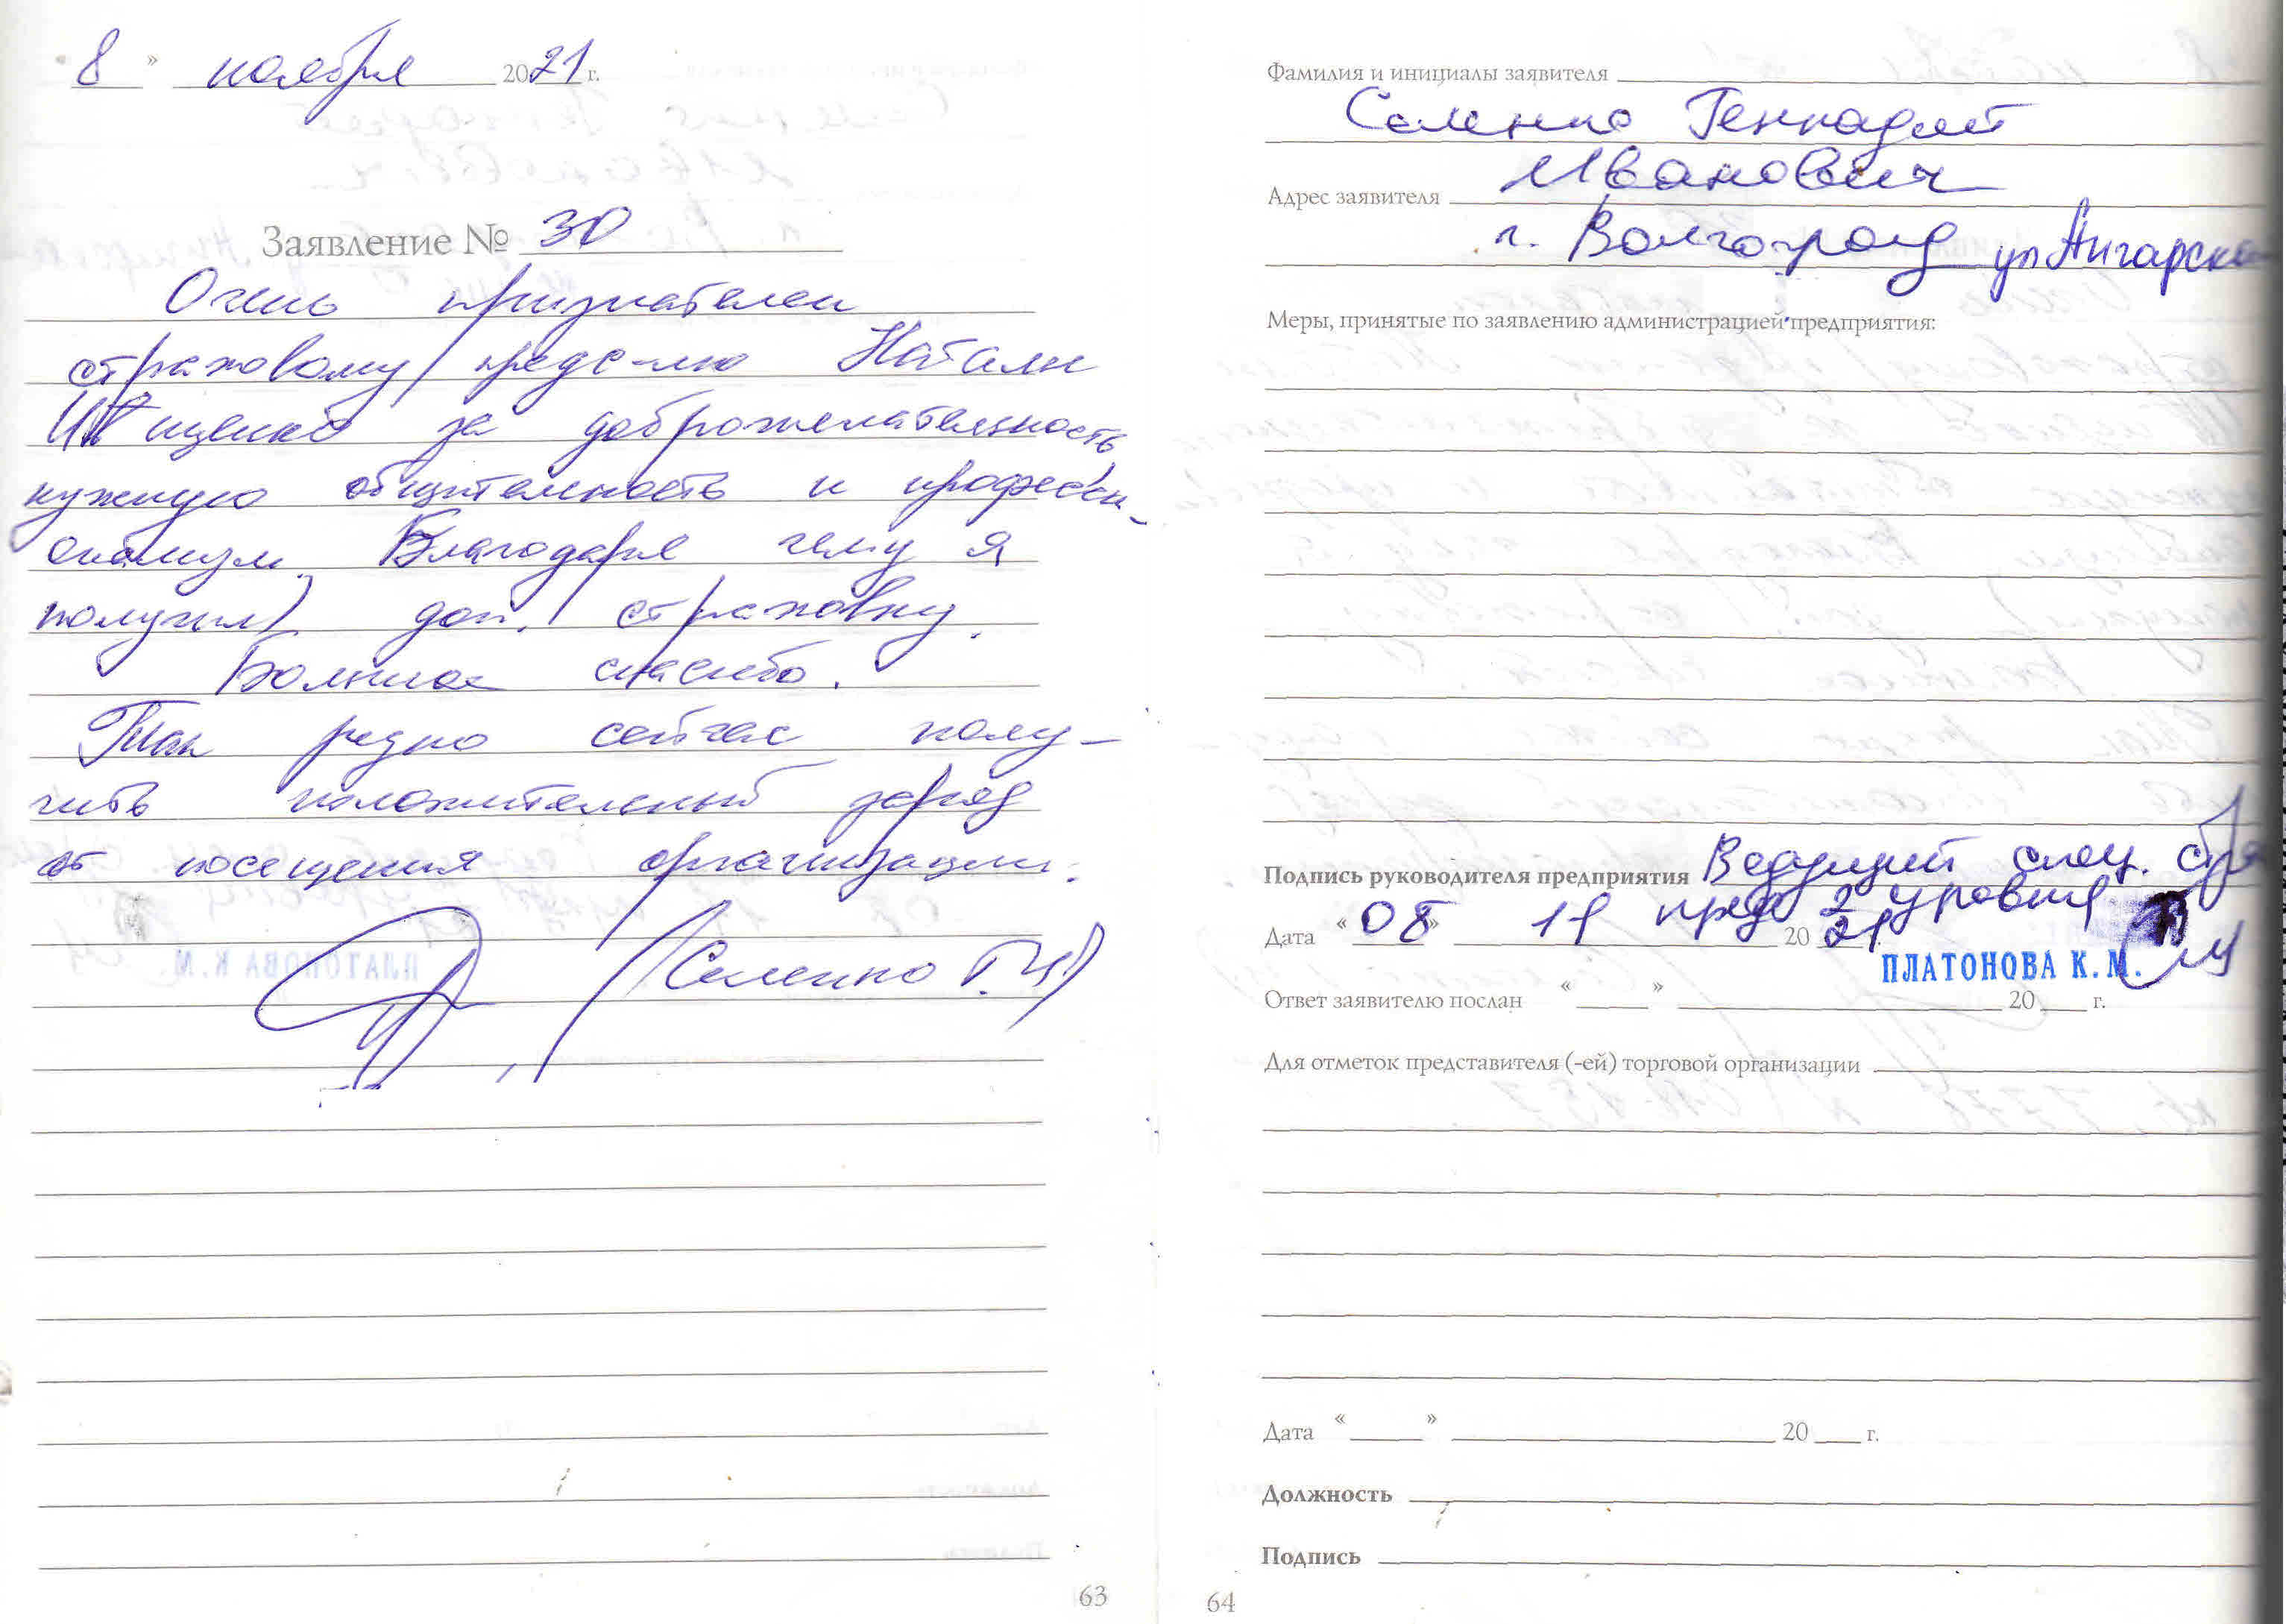 8 » ноября 2021 г.
Заявление № 30
Очень признателен
страховому предс-лю Натали
за доброжелательность
нужную общительность и професси-
онализм. Благодаря чему я
получил доп. страховку.
Большое спасибо.
Так редко сейчас полу-
чить положительный заряд
от посещения организации.
(Селенко Г.И)
63
Фамилия и инициалы заявителя
Селенко Геннадий
Иванович
Адрес заявителя
г. Волгоград ул Ангарская
Меры, принятые по заявлению администрацией предприятия:
Подпись руководителя предприятия Ведущий спец. стра
пред 2 уровня
Дата «08» 11 2021
ПЛАТОНОВА К.М.
Ответ заявителю послан « » 20 г.
Для отметок представителя (-ей) торговой организации
Дата « » 20 г.
Должность
Подпись
64